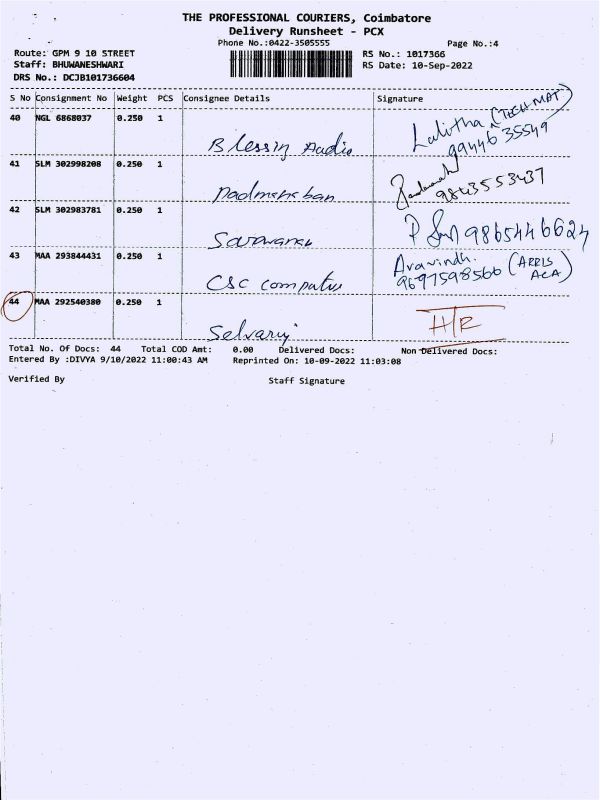 THE PROFESSIONAL COURIERS, Coimbatore
Delivery Runsheet - PCX
Phone No.:0422-3505555
Page No.:4
Route: GPM 9 10 STREET
RS No.: 1017366
Staff: BHUWANESHWARI
RS Date: 10-Sep-2022
DRS No.: DCJB101736604
S No Consignment No Weight PCS Consignee Details Signature
40 NGL 6868037 0.250 1
Blessing Audio Lalitha (TECH MAT)
99446 35549
41 SLM 302998208 0.250 1
Padmanaban 9843553437
42 SLM 302983781 0.250 1
Saravanan 9865446624
43 MAA 293844431 0.250 1 Aravindh.
CSC computer 9697598566 (ARRIS ACA)
44 MAA 292540380 0.250 1
Selvaraj H/R
Total No. Of Docs: 44 Total COD Amt: 0.00 Delivered Docs: Non Delivered Docs:
Entered By :DIVYA 9/10/2022 11:00:43 AM Reprinted On: 10-09-2022 11:03:08
Verified By Staff Signature